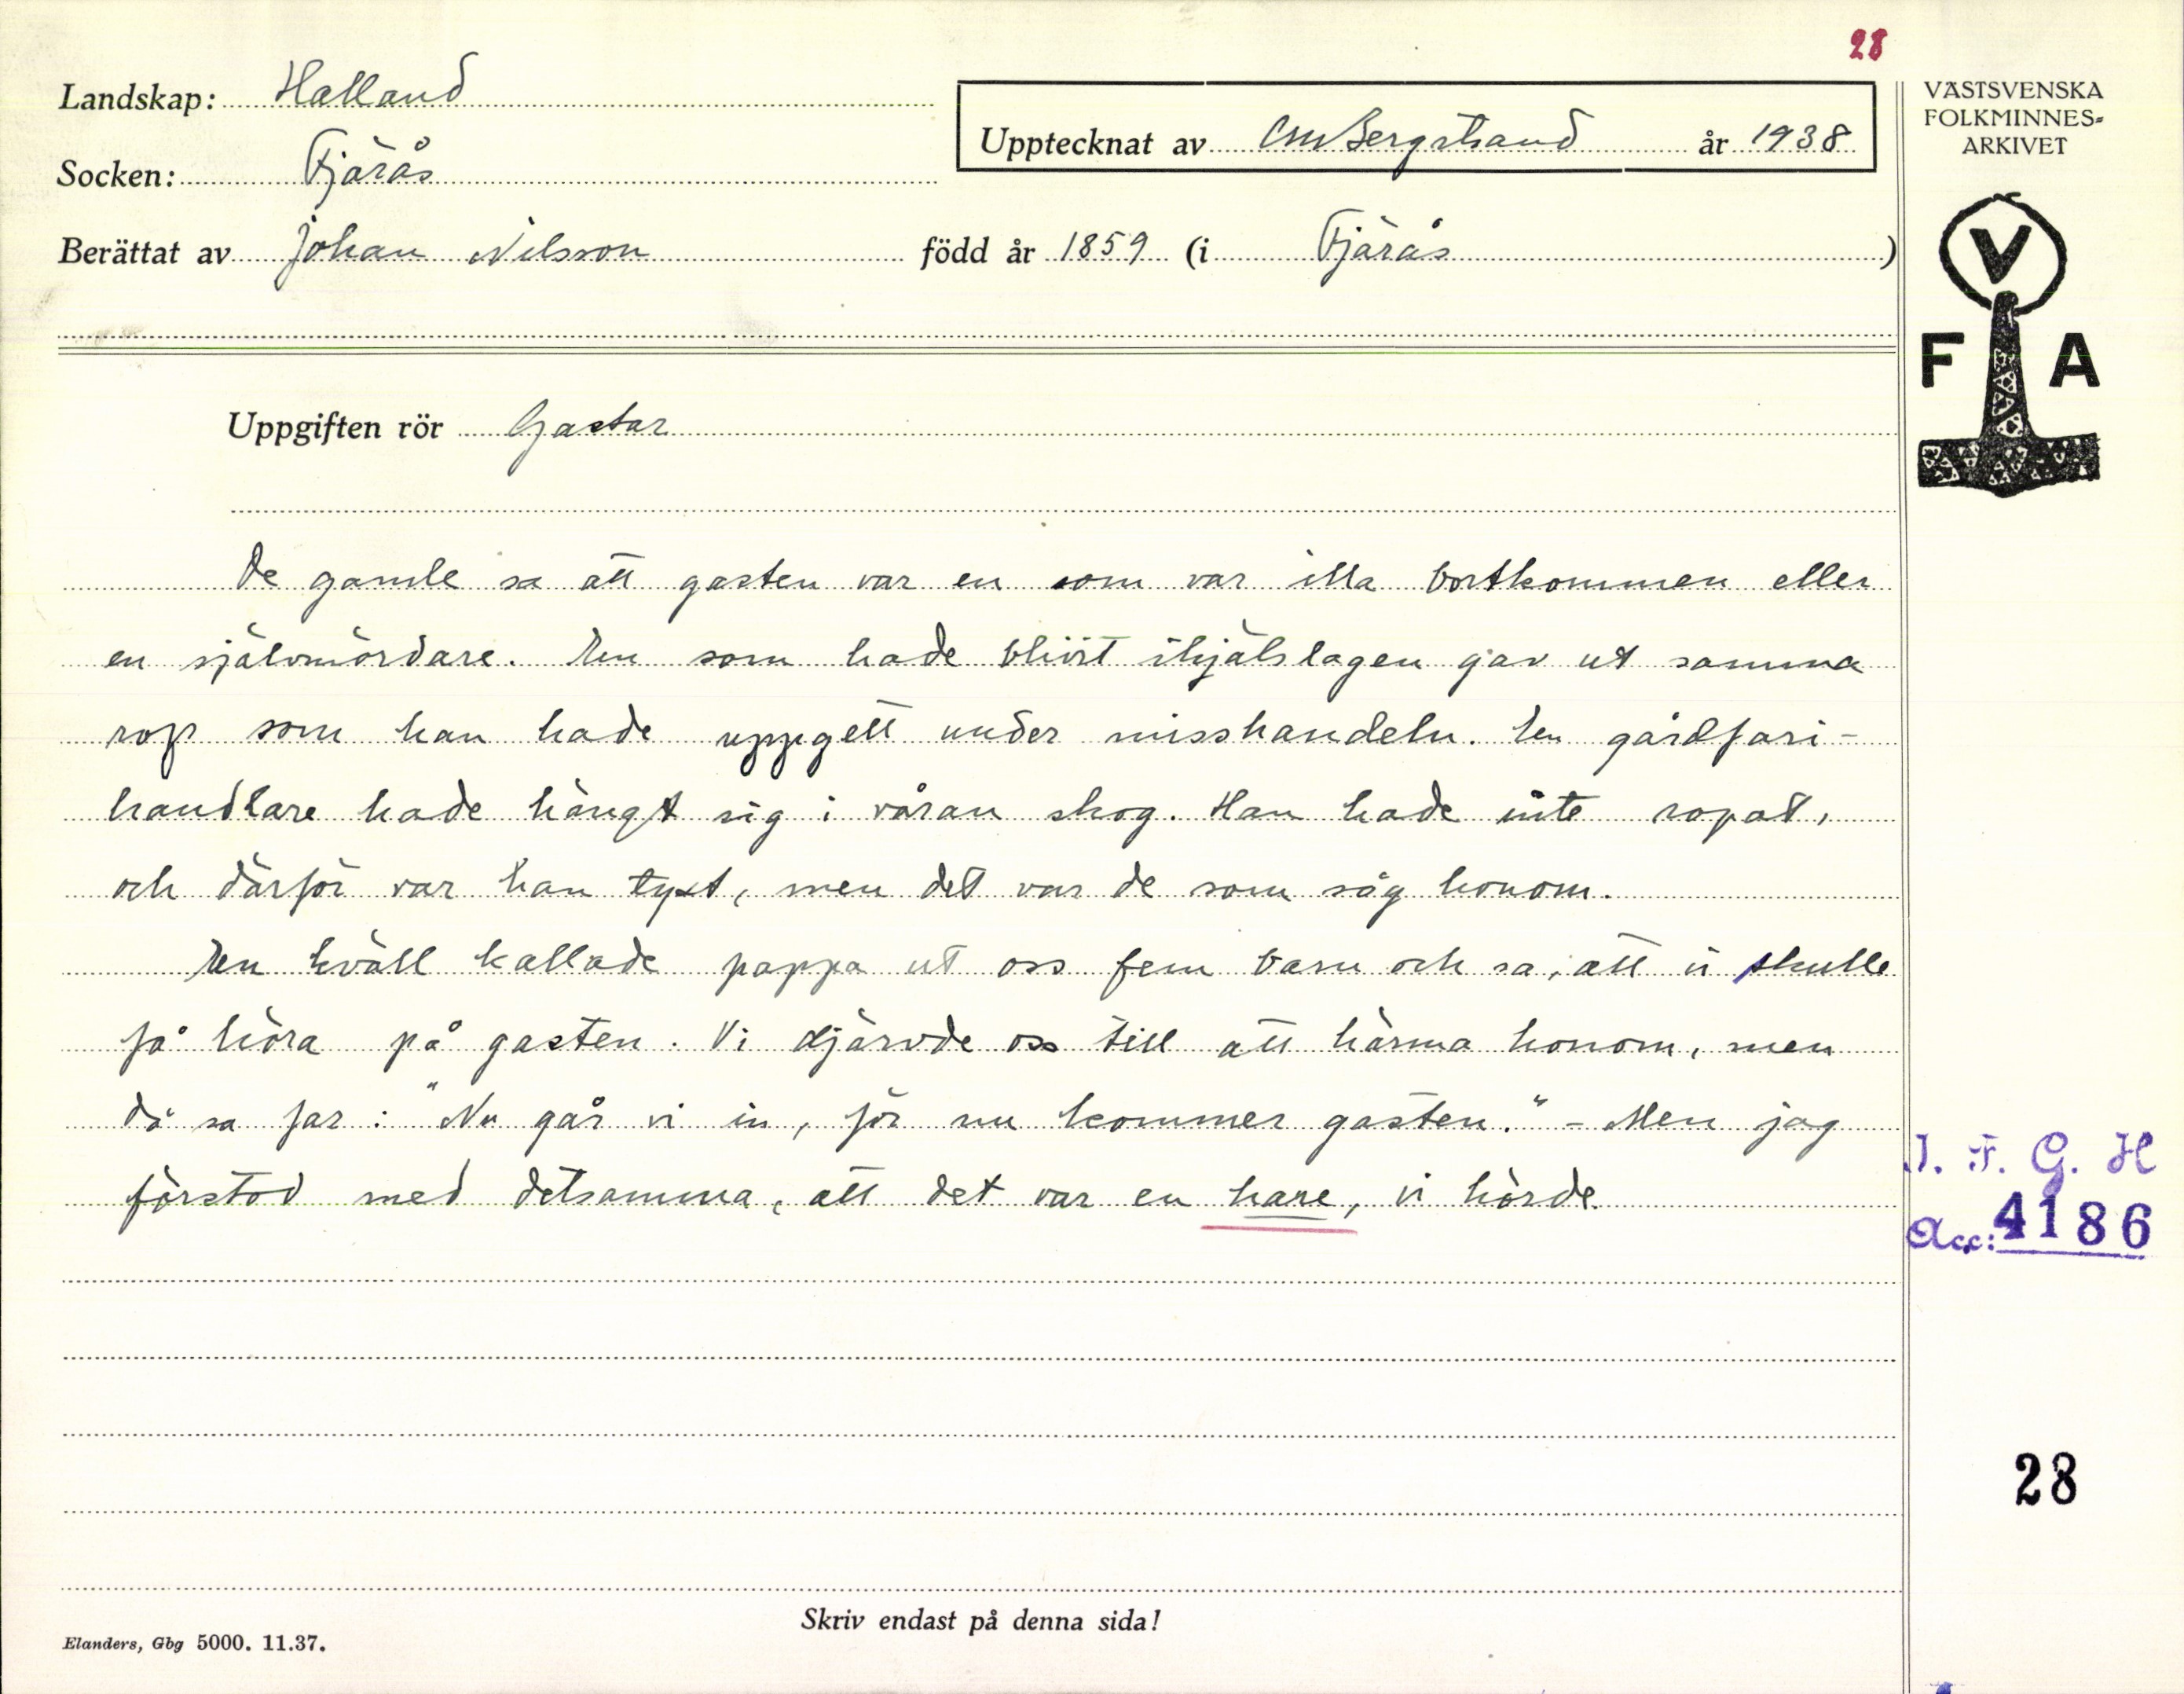 28
Landskap: Halland
Upptecknat av CM Bergstrand år 1938
Socken: Fjärås
Berättat av Johan Nilsson född år 1859 (i Fjärås)
VÄSTSVENSKA
FOLKMINNES-
ARKIVET
V
F A
Uppgiften rör Gastar
De gamle sa att gasten var en som var illa bortkommen eller
en självmördare. En som hade blivit ihjälslagen gav ut samma
rop som han hade uppgett under misshandeln. En gårdfari-
handlare hade hängt sig i våran skog. Han hade inte ropat,
och därför var han tyst, men det var de som såg honom.
En kväll kallade pappa ut oss fem barn och sa, att vi skulle
få höra på gasten. Vi djärvde oss till att härma honom, men
då sa far: "Nu går vi in, för nu kommer gasten." - Men jag
förstod med detsamma, att det var en hare, vi hörde.
I. F. G. H
Acc: 4186
28
Skriv endast på denna sida!
Elanders, Gbg 5000. 11.37.